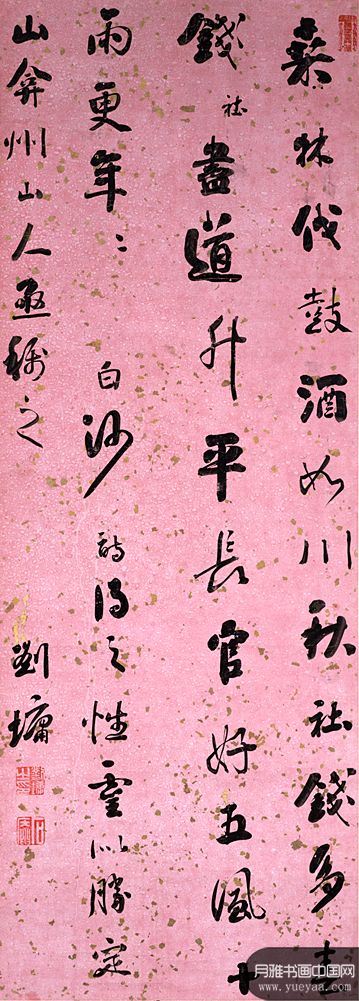 桑林伐鼓酒如川秋社錢多春
錢社盡道升平長官好五風十
雨更年〻白沙詩得之性靈以勝定
山弇州山人亟稱之
劉墉
月雅书画中国网
www.yueyaa.com